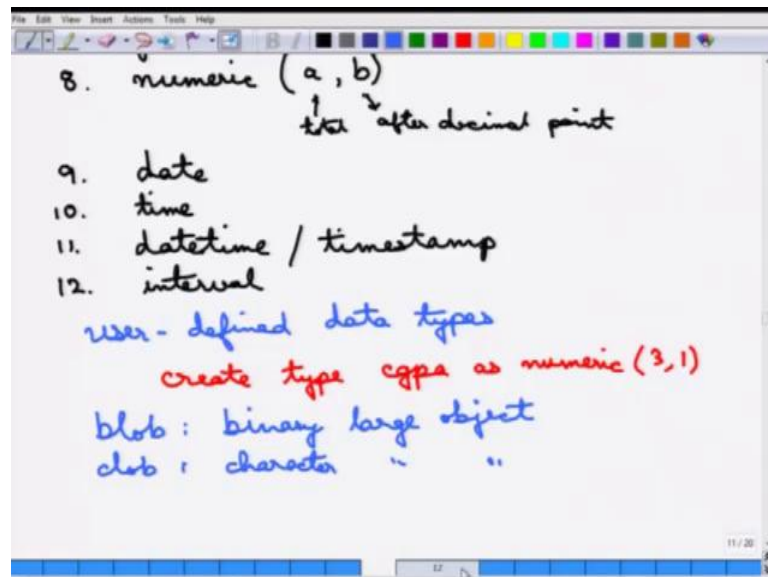 File Edit View Insert Actions Tools Help
8. numeric (a, b)
total after decimal point
9. date
10. time
11. datetime / timestamp
12. interval
user-defined data types
create type cgpa as numeric (3,1)
blob : binary large object
clob : character " "
11 / 20
12